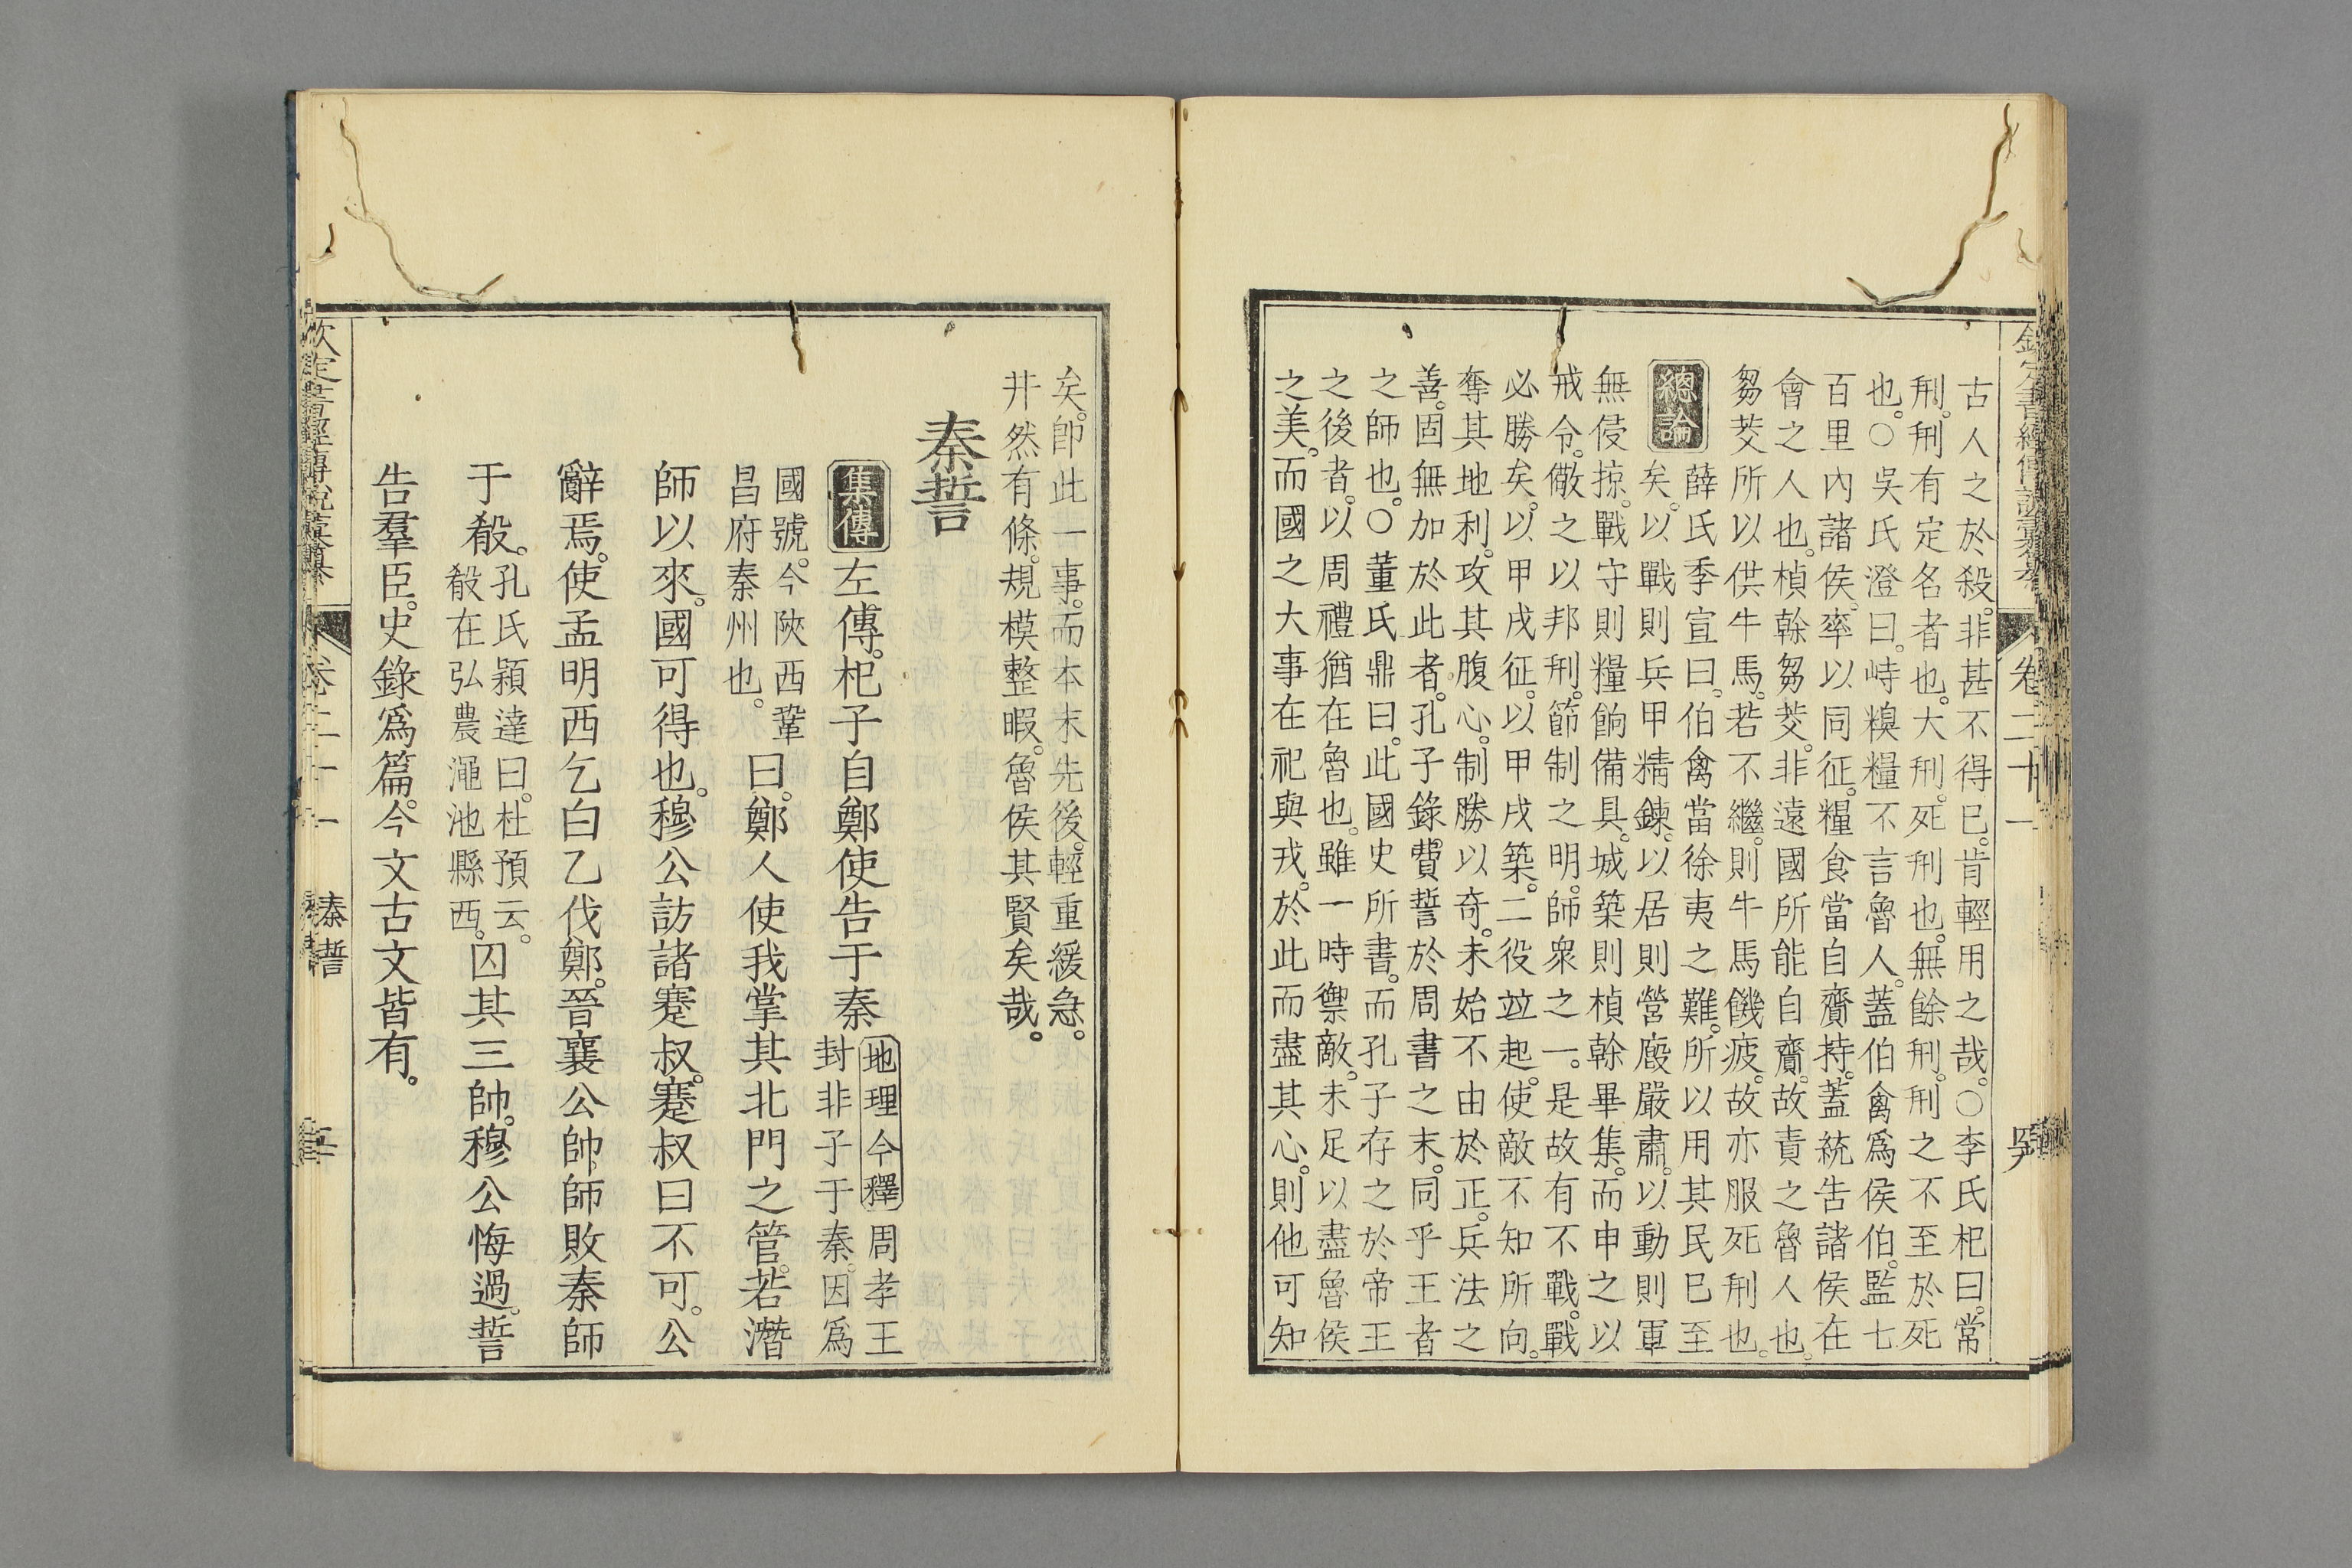 古人之於殺。非甚不得已。肯輕用之哉。○李氏杞曰。常
刑。刑有定名者也。大刑。死刑也。無餘刑。刑之不至於死
也。○吳氏澄曰。峙糗糧不言魯人。蓋伯禽爲侯伯。監七
百里內諸侯。率以同征。糧食當自齎持。蓋統告諸侯在
會之人也。楨榦芻茭。非遠國所能自齎。故責之魯人也。
芻茭所以供牛馬。若不繼。則牛馬饑疲。故亦服死刑也。
總論
薛氏季宣曰。伯禽當徐夷之難。所以用其民已至
矣。以戰則兵甲精鍊。以居則營廏嚴肅。以動則軍
無侵掠。戰守則糧餉備具。城築則楨榦畢集。而申之以
戒令。儆之以邦刑。節制之明。師衆之一。是故有不戰。戰
必勝矣。以甲戌征。以甲戌築。二役竝起。使敵不知所向。
奪其地利。攻其腹心。制勝以奇。未始不由於正。兵法之
善。固無加於此者。孔子錄費誓於周書之末。同乎王者
之師也。○董氏鼎曰。此國史所書。而孔子存之於帝王
之後者。以周禮猶在魯也。雖一時禦敵。未足以盡魯侯
之美。而國之大事在祀與戎。於此而盡其心。則他可知
卷二十一
矣。卽此一事。而本末先後。輕重緩急。
井然有條。規模整暇。魯侯其賢矣哉。
秦誓
集傳
左傳。杞子自鄭使告于秦
地理今釋
周孝王
封非子于秦。因爲
國號。今陝西鞏
昌府秦州也。
曰。鄭人使我掌其北門之管。若潛
師以來。國可得也。穆公訪諸蹇叔。蹇叔曰不可。公
辭焉。使孟明西乞白乙伐鄭。晉襄公帥師敗秦師
于殽。
孔氏穎達曰。杜預云。
殽在弘農澠池縣西。
囚其三帥。穆公悔過。誓
告羣臣。史錄爲篇。今文古文皆有。
秦誓